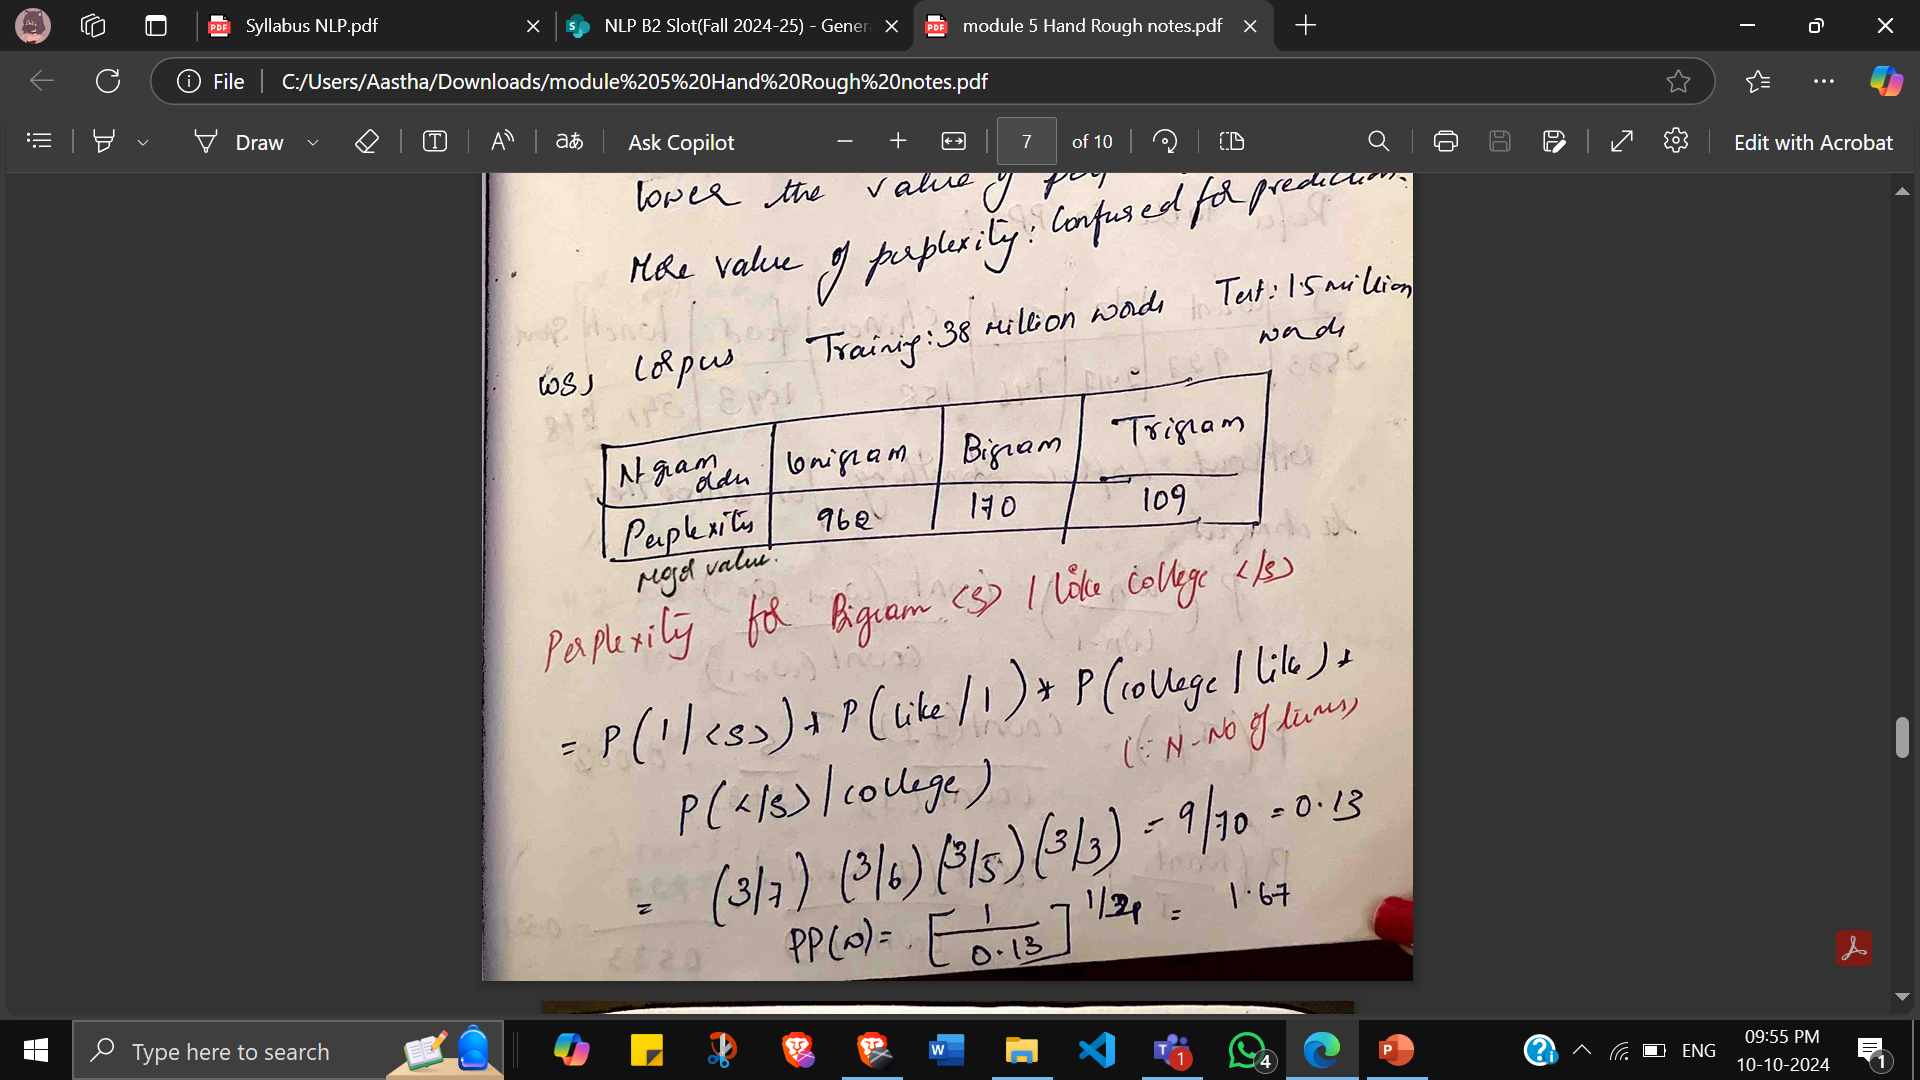 Syllabus NLP.pdf
NLP B2 Slot(Fall 2024-25) - Gener
module 5 Hand Rough notes.pdf
File
C:/Users/Aastha/Downloads/module%205%20Hand%20Rough%20notes.pdf
Draw
Ask Copilot
7
of 10
Edit with Acrobat
lower the value of
More value of perplexity: Confused for prediction.
WSJ Corpus Training: 38 million words Test: 1.5 million
words
N-gram order Unigram Bigram Trigram
Perplexity 962 170 109
value.
Perplexity for Bigram <s> I like college </s>
= P(I/<s>) * P(like/I) * P(college/like) *
P(</s>/college) (∵ N - No of terms)
= (3/7) (3/6) (3/5) (3/3) = 9/70 = 0.13
PP(w) = [1/0.13]^1/4 = 1.67
Type here to search
W
T 1
4
P
ENG
09:55 PM
10-10-2024
1